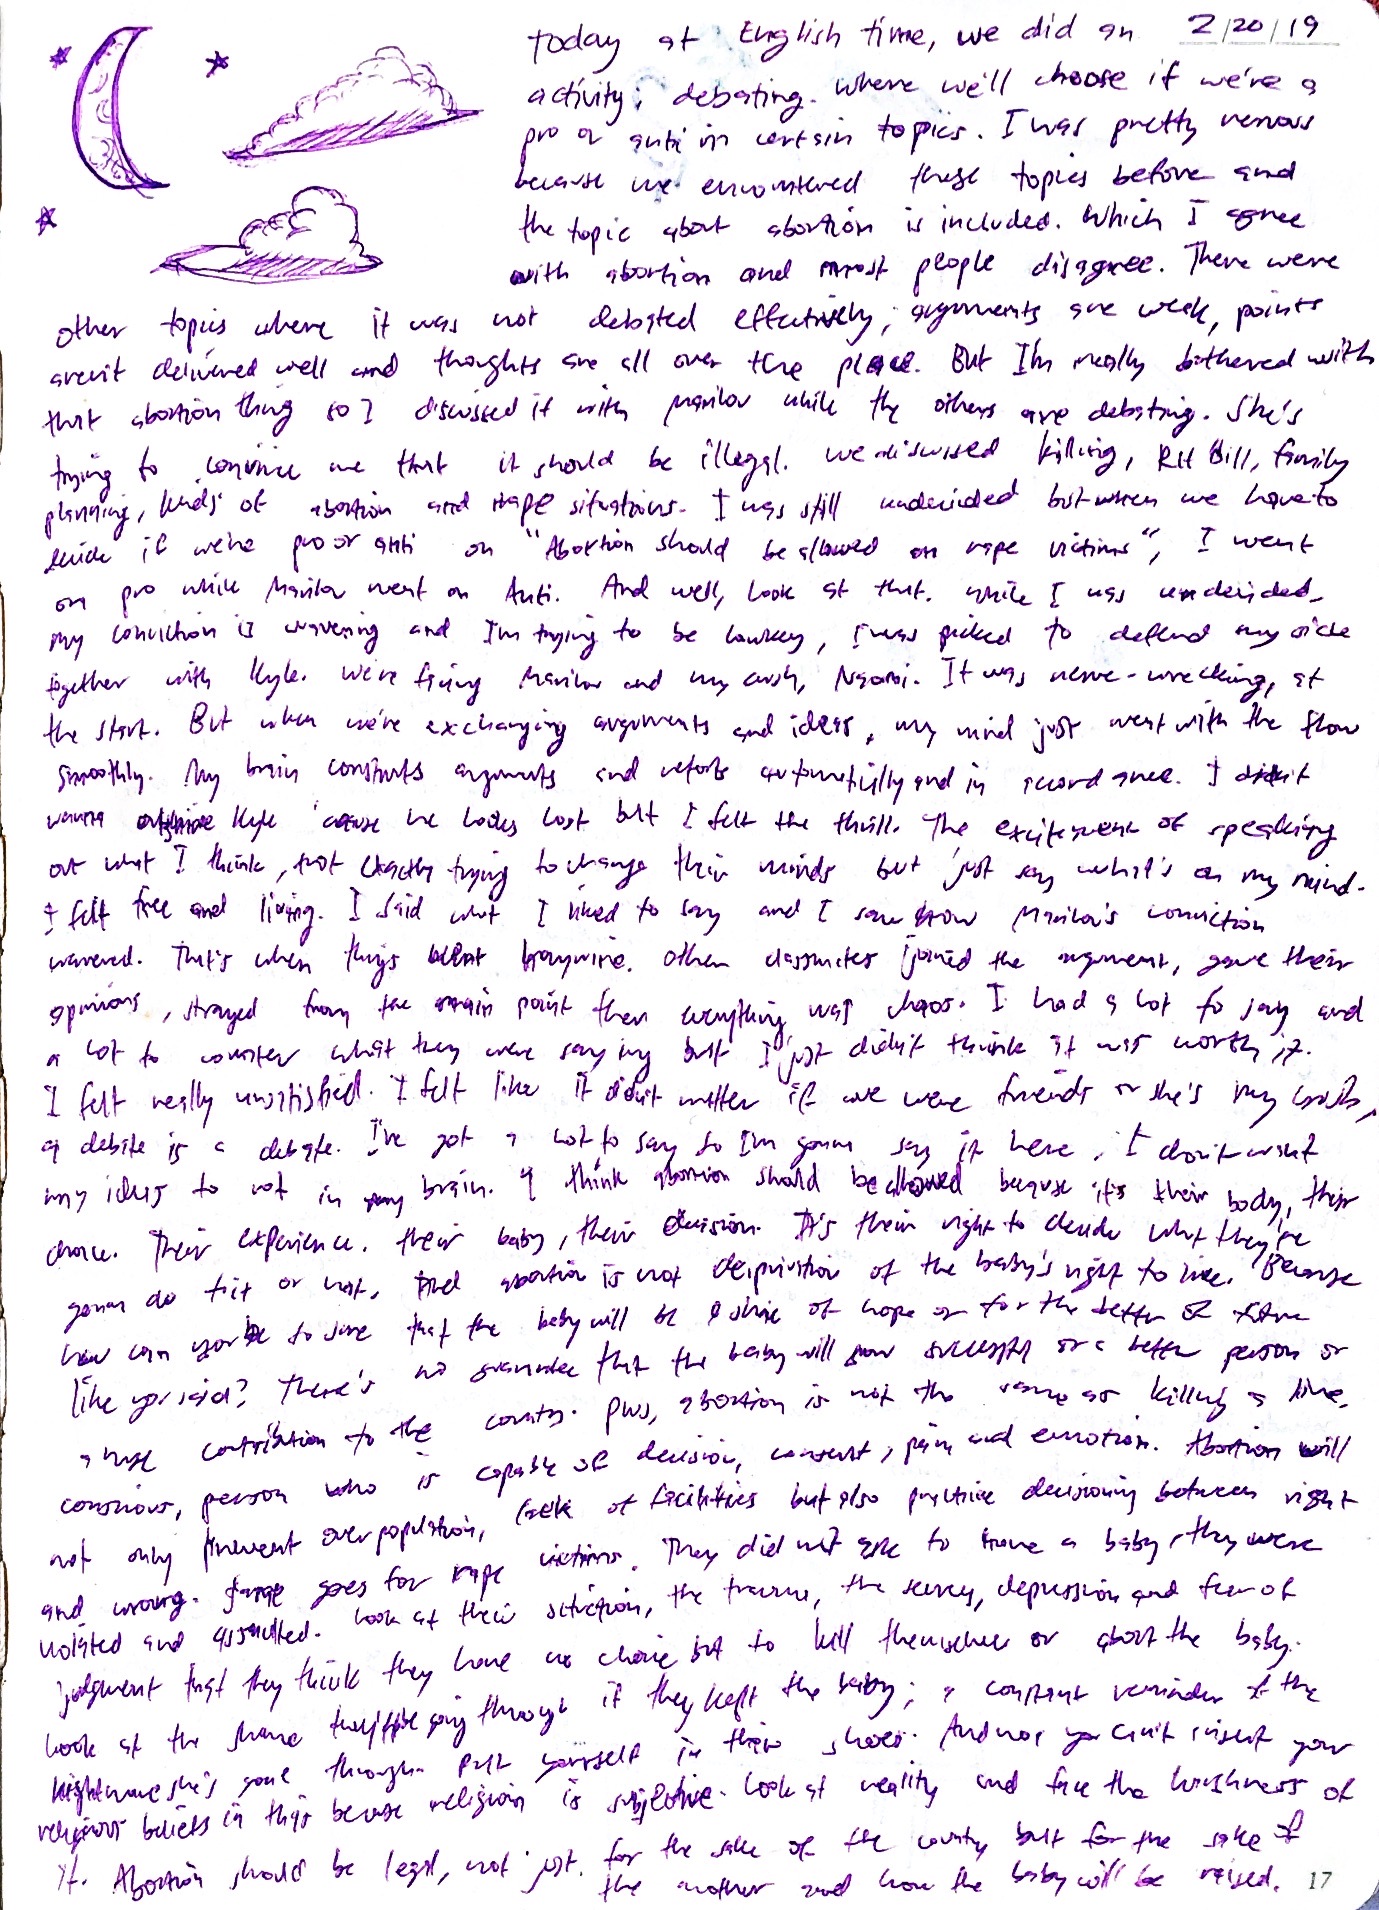 Today at English time, we did an 2/20/19
activity; debating. Where we'll choose if we're a
pro or anti in certain topics. I was pretty nervous
because we encountered these topics before and
the topic about abortion is included. Which I agree
with abortion and most people disagree. There were
other topics where it was not debated effectively; arguments are weak, points
aren't delivered well and thoughts are all over the place. But I'm really bothered with
that abortion thing so I discussed it with Marilou while the others are debating. She's
trying to convince me that it should be illegal. We discussed killing, RH Bill, family
planning, kinds of abortion and rape situations. I was still undecided but when we have to
decide if we're pro or anti on "Abortion should be allowed on rape victims", I went
on pro while Marilou went on Anti. And well, look at that. While I was undecided,
my conviction is wavering and I'm trying to be lowkey, I was picked to defend my side
together with Kyle. We're facing Marilou and my crush, Naomi. It was nerve-wrecking, at
the start. But when we're exchanging arguments and ideas, my mind just went with the flow
smoothly. My brain constructs arguments and retorts automatically and in accordance. I didn't
wanna outshine Kyle 'cause he looks lost but I felt the thrill. The excitement of speaking
out what I think, not exactly trying to change their minds but just say what's on my mind.
I felt free and living. I said what I liked to say and I saw how Marilou's conviction
wavered. That's when things went haywire. Other classmates joined the argument, gave their
opinions, strayed from the main point then everything was chaos. I had a lot to say and
a lot to counter what they were saying but I just didn't think it was worth it.
I felt really unsatisfied. I felt like it didn't matter if we were friends or she's my crush,
a debate is a debate. I've got a lot to say so I'm gonna say it here. I don't want
my ideas to rot in my brain. I think abortion should be allowed because it's their body, their
choice. Their experience. Their baby, their decision. It's their right to decide what they're
gonna do to it or not. And abortion is not deprivation of the baby's right to live. Because
how can you be so sure that the baby will be a shine of hope or for the better of future
like you said? There's no guarantee that the baby will grow successful or a better person or
a huge contribution to the country. Plus, abortion is not the same as killing a live,
conscious, person who is capable of decision, consent, pain and emotion. Abortion will
not only prevent overpopulation, lack of facilities but also practice decisioning between right
and wrong. Same goes for rape victims. They did not ask to have a baby, they were
violated and assaulted. Look at their situation, the trauma, the depression and fear of
judgment that they think they have no choice but to kill themselves or abort the baby.
Look at the shame they'll be going through if they kept the baby; a constant reminder of the
nightmare she's gone through. Put yourself in their shoes. And no, you can't insert your
religious beliefs in this because religion is subjective. Look at reality and face the harshness of
it. Abortion should be legal, not just for the sake of the country but for the sake of
the mother and how the baby will be raised. 17